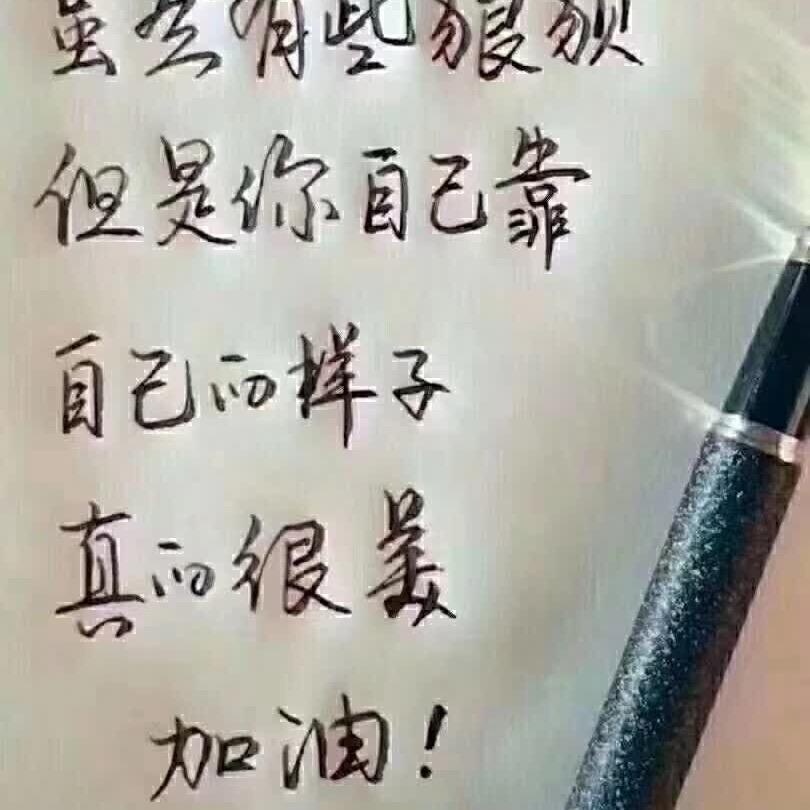 虽然有些狼狈
但是你自己靠
自己的样子
真的很美
加油！